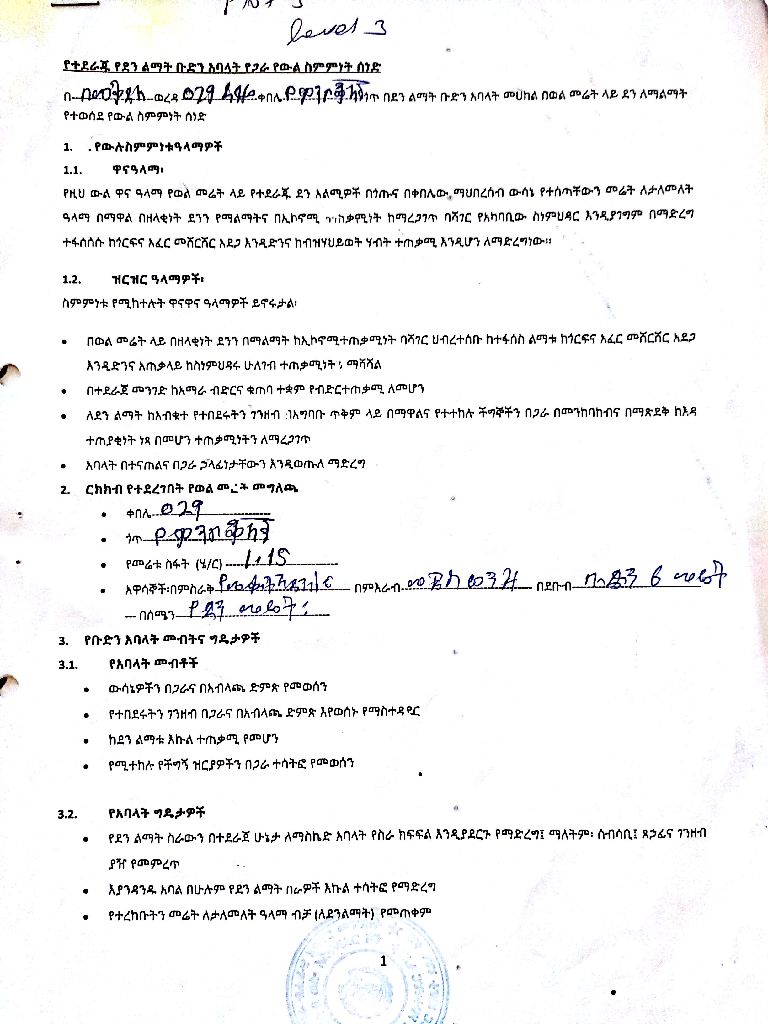 level 3
የተደራጁ የደን ልማት ቡድን አባላት የጋራ የውል ስምምነት ሰነድ
በ ወረዳ 029 ቀበሌ ጎጥ በደን ልማት ቡድን አባላት መሀከል በወል መሬት ላይ ደን ለማልማት
የተወሰደ የውል ስምምነት ሰነድ
1. .የውሉስምምነቱዓላማዎች
1.1. ዋናዓላማ፡
የዚህ ውል ዋና ዓላማ የወል መሬት ላይ የተደራጁ ደን አልሚዎች በጎጡና በቀበሌው ማህበረሰብ ውሳኔ የተሰጣቸውን መሬት ለታለመለት
ዓላማ በማዋል በዘላቂነት ደንን የማልማትና በኢኮኖሚ ተጠቃሚነት ከማረጋገጥ ባሻገር የአካባቢው ስነምህዳር እንዲያገግም በማድረግ
ተፋሰሰሱ ከጎርፍና አፈር መሸርሸር አደጋ እንዲድንና ከብዝሃህይወት ሃብት ተጠቃሚ እንዲሆን ለማድረግነው።
1.2. ዝርዝር ዓላማዎች፡
ስምምነቱ የሚከተሉት ዋናዋና ዓላማዎች ይኖሩታል፡
• በወል መሬት ላይ በዘላቂነት ደንን በማልማት ከኢኮኖሚተጠቃሚነት ባሻገር ህብረተሰቡ ከተፋሰስ ልማቱ ከጎርፍና አፈር መሸርሸር አደጋ
እንዲድንና አጠቃላይ ከስነምህዳሩ ሁለገብ ተጠቃሚነት ማሻሻል
• በተደራጀ መንገድ ከአማራ ብድርና ቁጠባ ተቋም የብድርተጠቃሚ ለመሆን
• ለደን ልማት ከአብቁተ የተበደሩትን ገንዘብ በአግባቡ ጥቅም ላይ በማዋልና የተተከሉ ችግኞችን በጋራ በመንከባከብና በማጽደቅ ከእዳ
ተጠያቂነት ነጻ በመሆን ተጠቃሚነትን ለማረጋገጥ
• አባላት በተናጠልና በጋራ ኃላፊነታቸውን እንዲወጡለ ማድረግ
2. ርክክብ የተደረገበት የወል መሬት መግለጫ
• ቀበሌ 029
• ጎጥ
• የመሬቱ ስፋት (ሄ/ር) 1.15
• አዋሳኞች፡በምስራቅ በምእራብ በደቡብ
በሰሜን የደን መሬት፡
3. የቡድን አባላት መብትና ግዴታዎች
3.1. የአባላት መብቶች
• ውሳኔዎችን በጋራና በአብላጫ ድምጽ የመወሰን
• የተበደሩትን ገንዘብ በጋራና በአብላጫ ድምጽ እየወሰኑ የማስተዳደር
• ከደን ልማቱ እኩል ተጠቃሚ የመሆን
• የሚተከሉ የችግኝ ዝርያዎችን በጋራ ተሳትፎ የመወሰን
3.2. የአባላት ግዴታዎች
• የደን ልማት ስራውን በተደራጀ ሁኔታ ለማስኬድ አባላት የስራ ክፍፍል እንዲያደርጉ የማድረግ፤ ማለትም፡ ሰብሳቢ፤ ጸኃፊና ገንዘብ
ያዥ የመምረጥ
• እያንዳንዱ አባል በሁሉም የደን ልማት ስራዎች እኩል ተሳትፎ የማድረግ
• የተረከቡትን መሬት ለታለመለት ዓላማ ብቻ (ለደንልማት) የመጠቀም
1